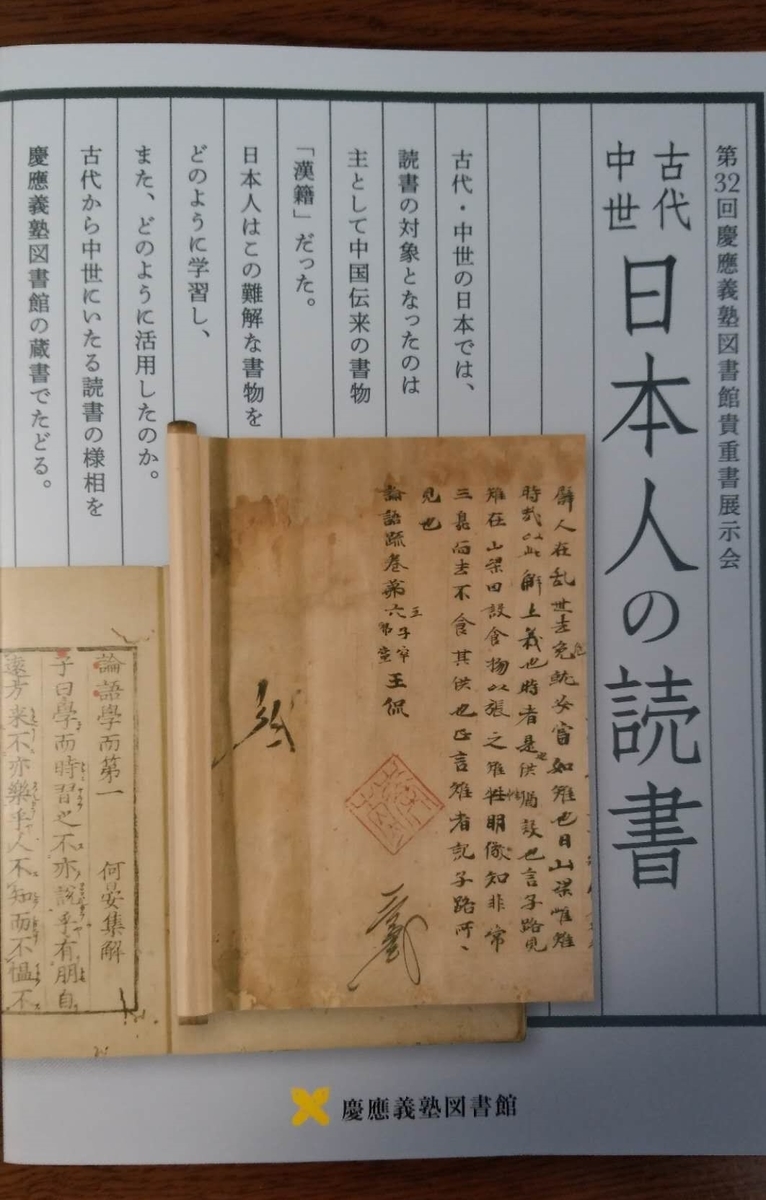 第32回慶應義塾図書館貴重書展示会
古代
中世
日本人の読書
古代・中世の日本では、
読書の対象となったのは
主として中国伝来の書物
「漢籍」だった。
日本人はこの難解な書物を
どのように学習し、
また、どのように活用したのか。
古代から中世にいたる読書の様相を
慶應義塾図書館の蔵書でたどる。
人在乱世去危就安當如雉也曰山梁雌雉
時哉以此解上義也時者是供設也言子路見
雉在山梁因設食物以張之雉性明儆知非常
三臭而去不食其供也正言雉者記子路所
見也
論語疏巻第六
王侃
論語學而第一 何晏集解
子曰學而時習之不亦說乎有朋自
遠方来不亦樂乎人不知而不慍不
慶應義塾図書館